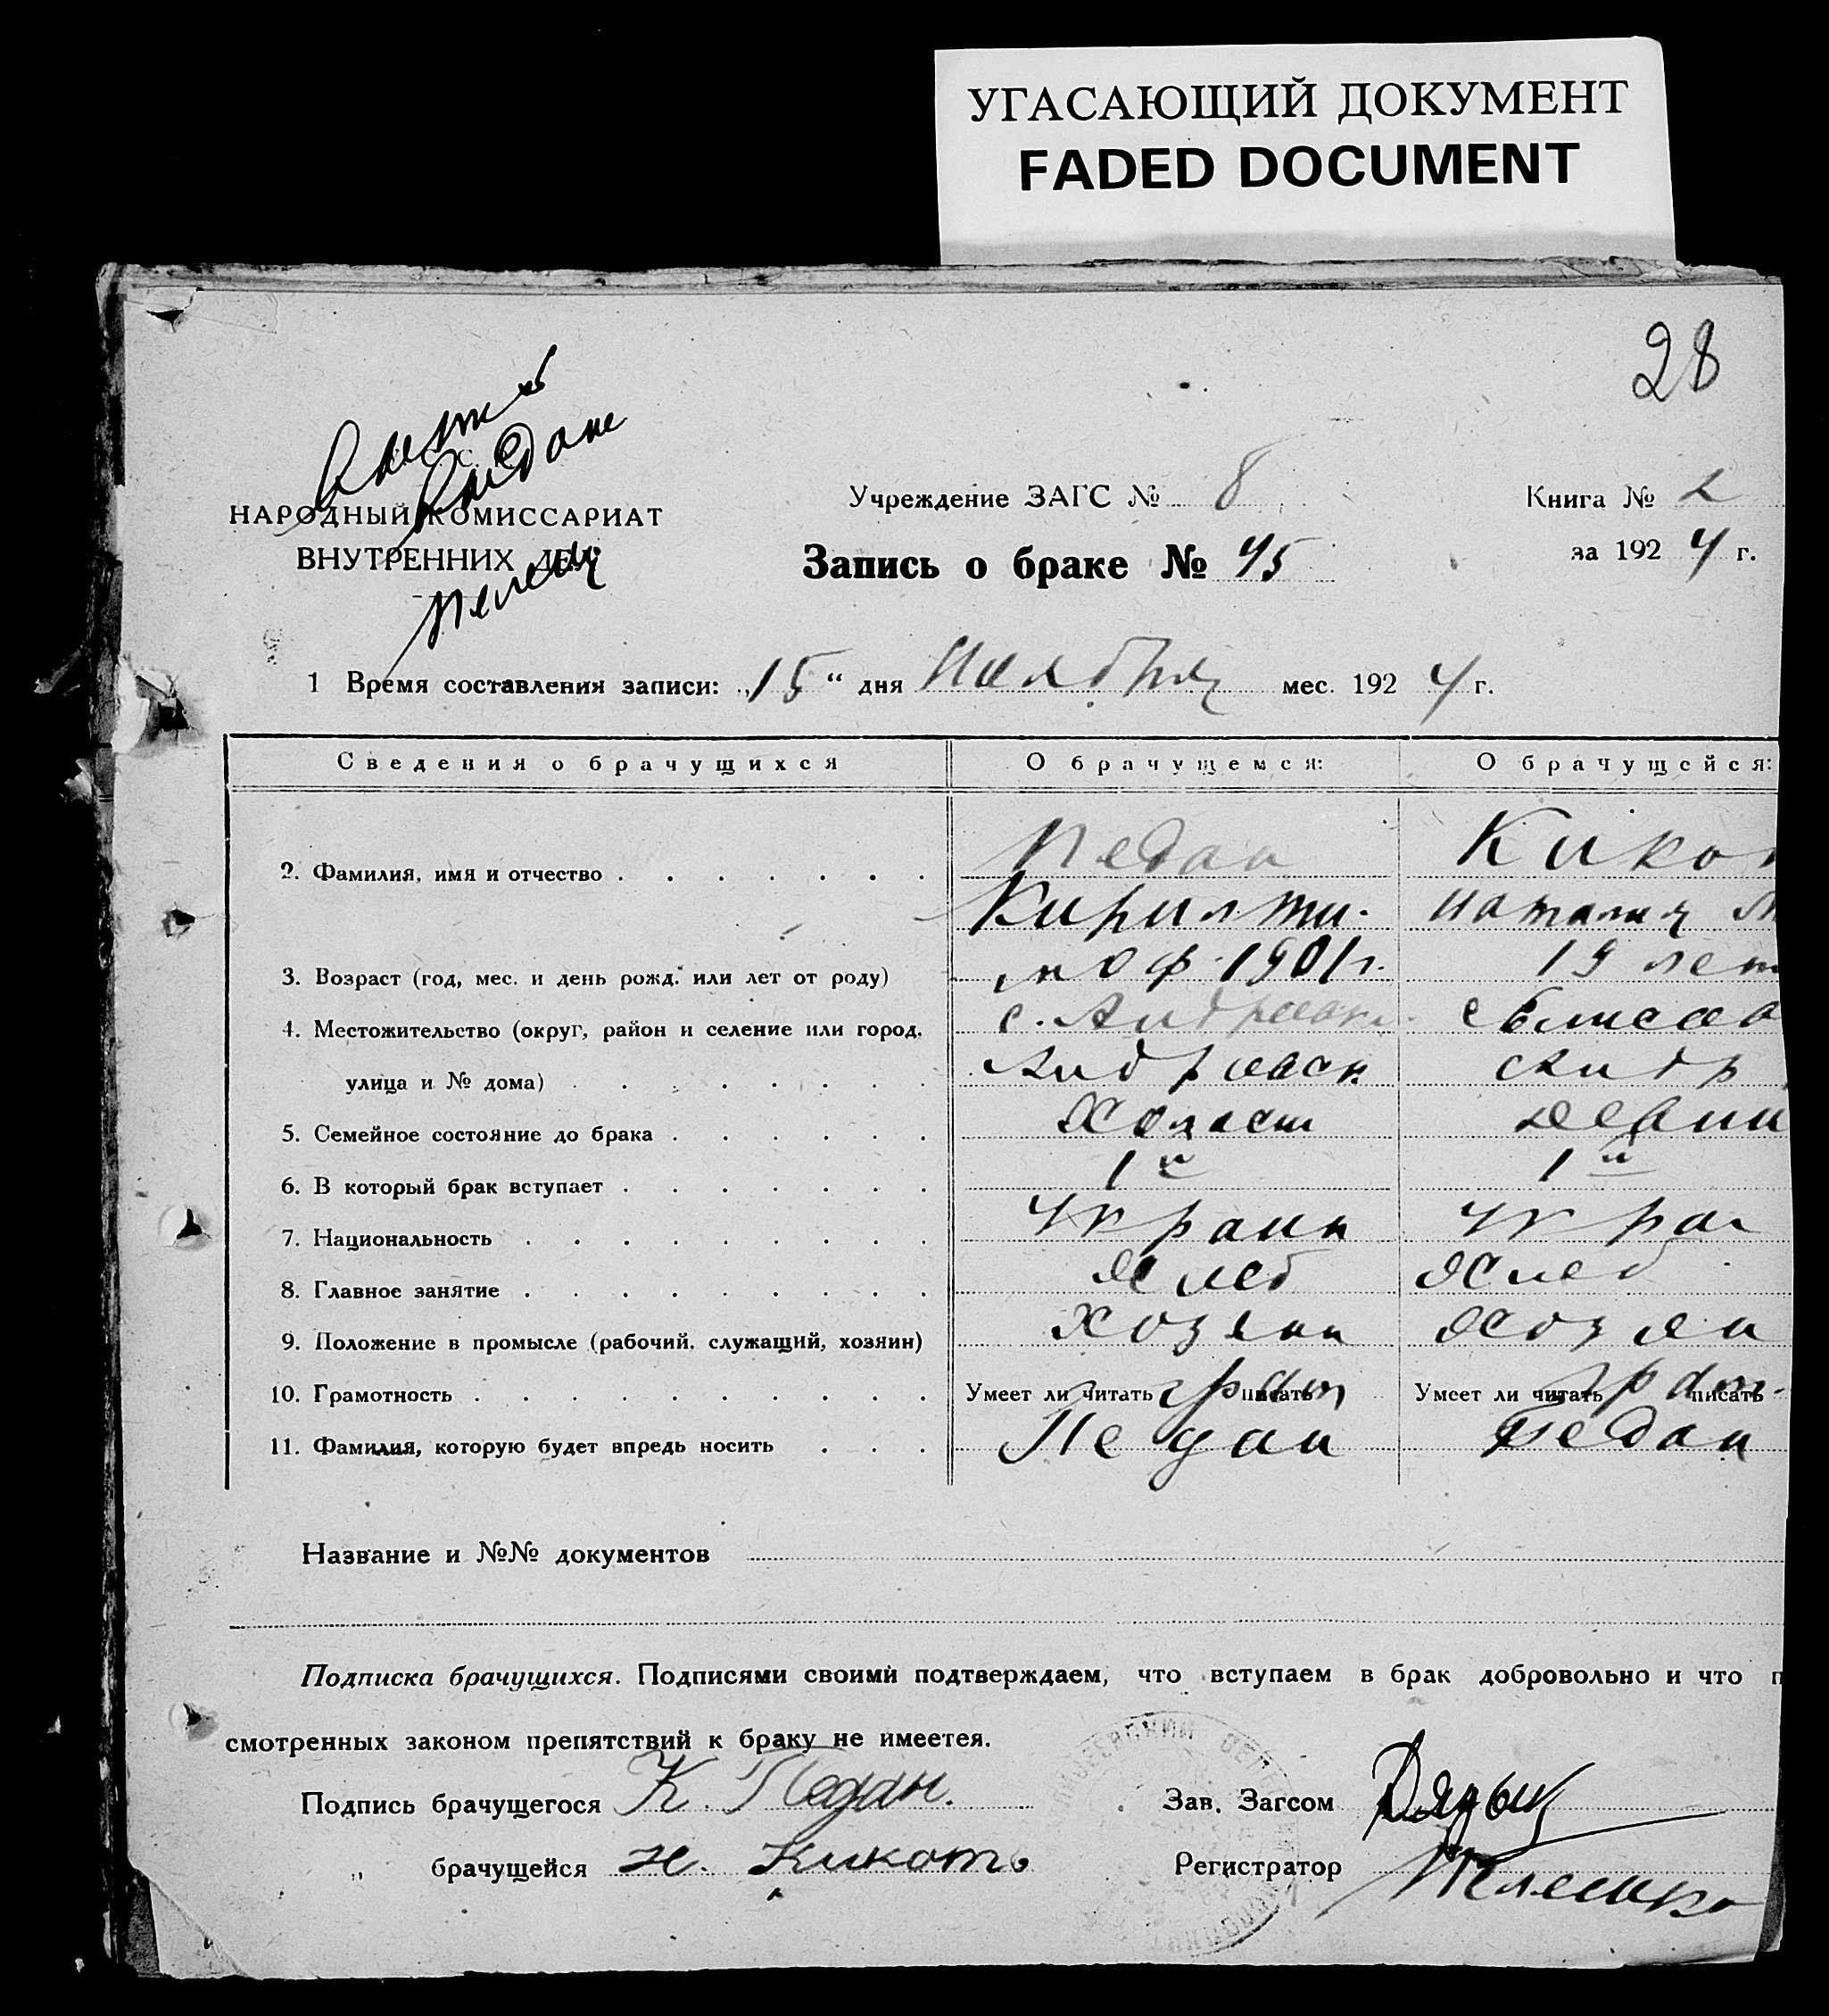 УГАСАЮЩИЙ ДОКУМЕНТ
FADED DOCUMENT
28
НАРОДНЫЙ КОМИССАРИАТ
ВНУТРЕННИХ ДЕЛ
Учреждение ЗАГС № 8
Книга № 2
Запись о браке № 45
за 1924 г.
1 Время составления записи: „15“ дня Ноября мес. 1924 г.
Сведения о брачущихся О брачущемся: О брачущейся:
Педан Кикот
2. Фамилия, имя и отчество
Кирил Ти- Наталия
моф 1901 г. 19 лет
3. Возраст (год, мес. и день рожд. или лет от роду)
с. Андреевк. с Елисеев
4. Местожительство (округ, район и селение или город,
улица и № дома) Андреевск Андр
5. Семейное состояние до брака Холост Девиц
6. В который брак вступает 1й 1й
7. Национальность Украин Украи
8. Главное занятие Хлеб Хлеб
9. Положение в промысле (рабочий, служащий, хозяин) Хозяин Хозяи
10. Грамотность Умеет ли читать писать грам Умеет ли читать писать грам-
11. Фамилия, которую будет впредь носить Педан Педан
Название и №№ документов
Подписка брачущихся. Подписями своими подтверждаем, что вступаем в брак добровольно и что п
смотренных законом препятствий к браку не имеетея.
Подпись брачущегося К. Педан. Зав. Загсом
„ брачущейся Н. Кикоть Регистратор